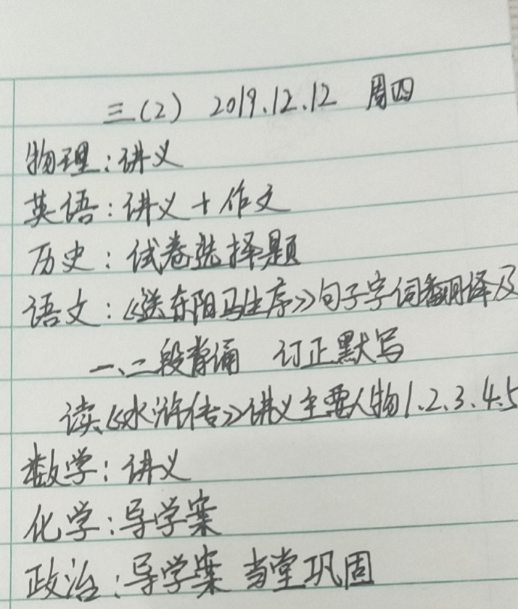 三(2) 2019.12.12 周四
物理:讲义
英语:讲义+作文
历史:试卷选择题
语文:《送东阳马生序》句子字词翻译及
一、二段背诵 订正默写
读《水浒传》讲义主要人物1.2.3.4.5
数学:讲义
化学:导学案
政治:导学案 当堂巩固